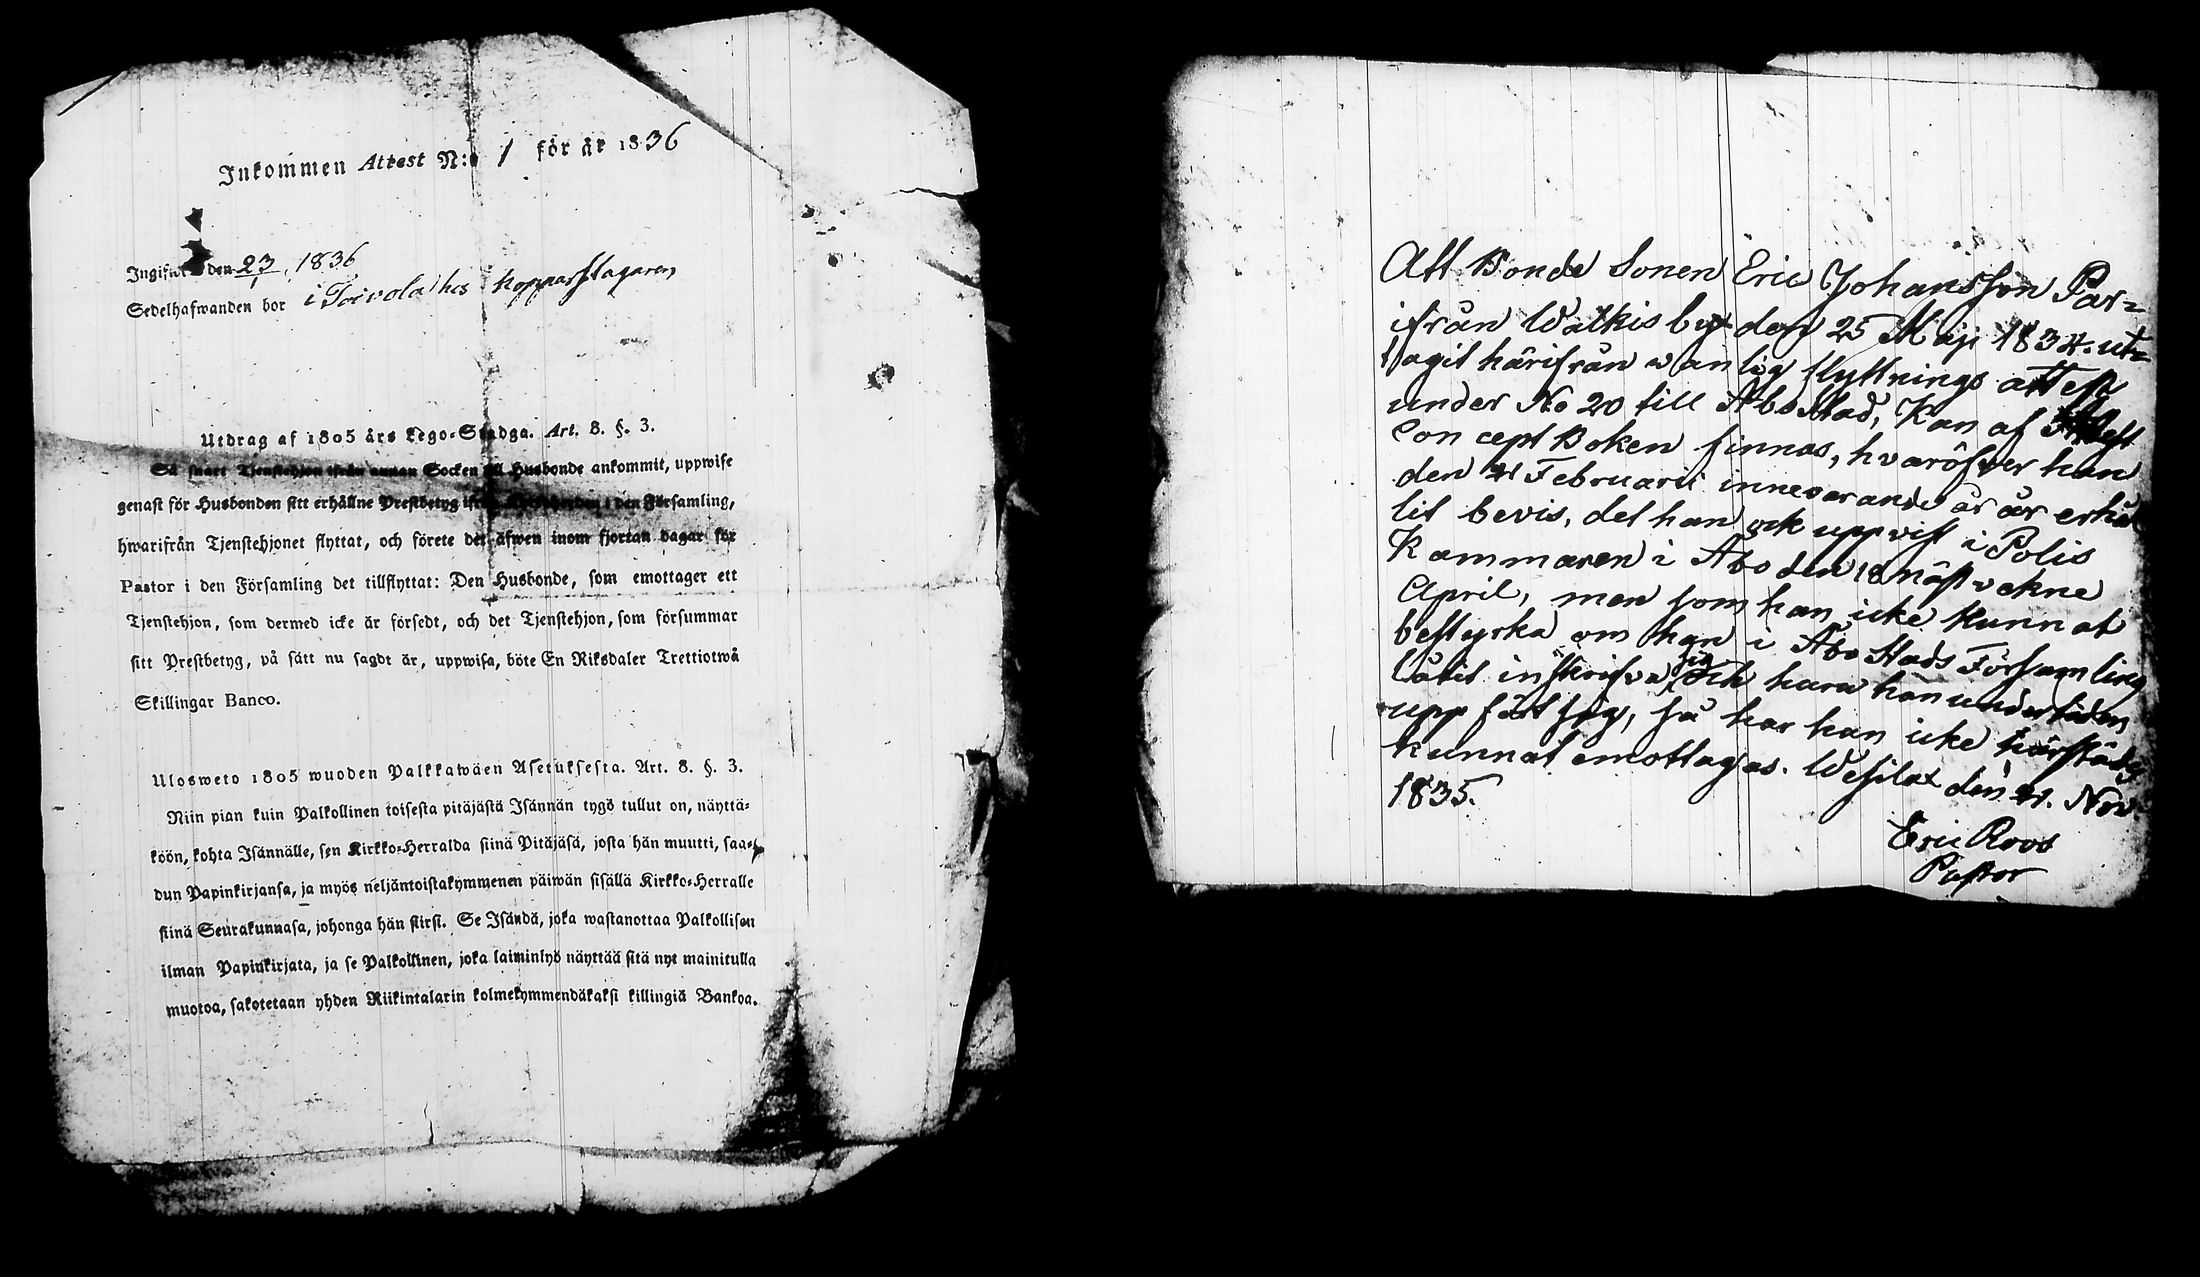 Inkommen Attest N:o 1 för år 1836
Ingifwen den 23/1 1836
Sedelhafwanden bor i Toivola hos kopparslagaren
Utdrag af 1805 års Lego-Stadga. Art. 8. §. 3.
Så snart Tjenstehjon ifrån annan Socken till Husbonde ankommit, uppwise
genast för Husbonden sitt erhållne Prestbetyg ifrån i den Församling,
hwarifrån Tjenstehjonet flyttat, och förete det äfwen inom fjortan dagar för
Pastor i den Församling det tillflyttat: Den Husbonde, som emottager ett
Tjenstehjon, som dermed icke är försedt, och det Tjenstehjon, som försummar
sitt Prestbetyg, på sätt nu sagdt är, uppwisa, böte En Riksdaler Trettiotwå
Skillingar Banco.
Ulosweto 1805 wuoden Palkkawäen Asetuksesta. Art. 8. §. 3.
Niin pian kuin Palkollinen toisesta pitäjästä Isännän tygö tullut on, näyttä-
köön, kohta Isännälle, sen Kirkko-Herralda siinä Pitäjäsä, josta hän muutti, saa-
dun Papinkirjansa, ja myös neljäntoistakymmenen päiwän sisällä Kirkko-Herralle
siinä Seurakunnasa, johonga hän siirsi. Se Isändä, joka wastanottaa Palkollisen
ilman Papinkirjata, ja se Palkollinen, joka laiminlyö näyttää sitä nyt mainitulla
muotoa, sakotetaan yhden Riikintalarin kolmekymmendäkaksi killingiä Bankoa.
Att Bonde Sonen Eric Johansson Par-
ifrån Walkis by den 25 Maji 1834. ut-
tagit härifrån wanlig flyttnings attest
under No 20 till Åbo Stad, Kan af Attest
Concept Boken finnas, hvaröfver han
den 21 Februarii innevarande år är erhål-
lit bevis, det han ock uppvist i Polis
Kammaren i Åbo den 18 näst vekne
April, men som han icke kunnat
bestyrka om han i Åbo Stads Församling
låtit inskrifva sig och huru han under tiden
uppfört sig, så har han icke härstädes
kunnat emottagas. Wesilax den 21. Nov.
1835.
Eric Roos
Pastor